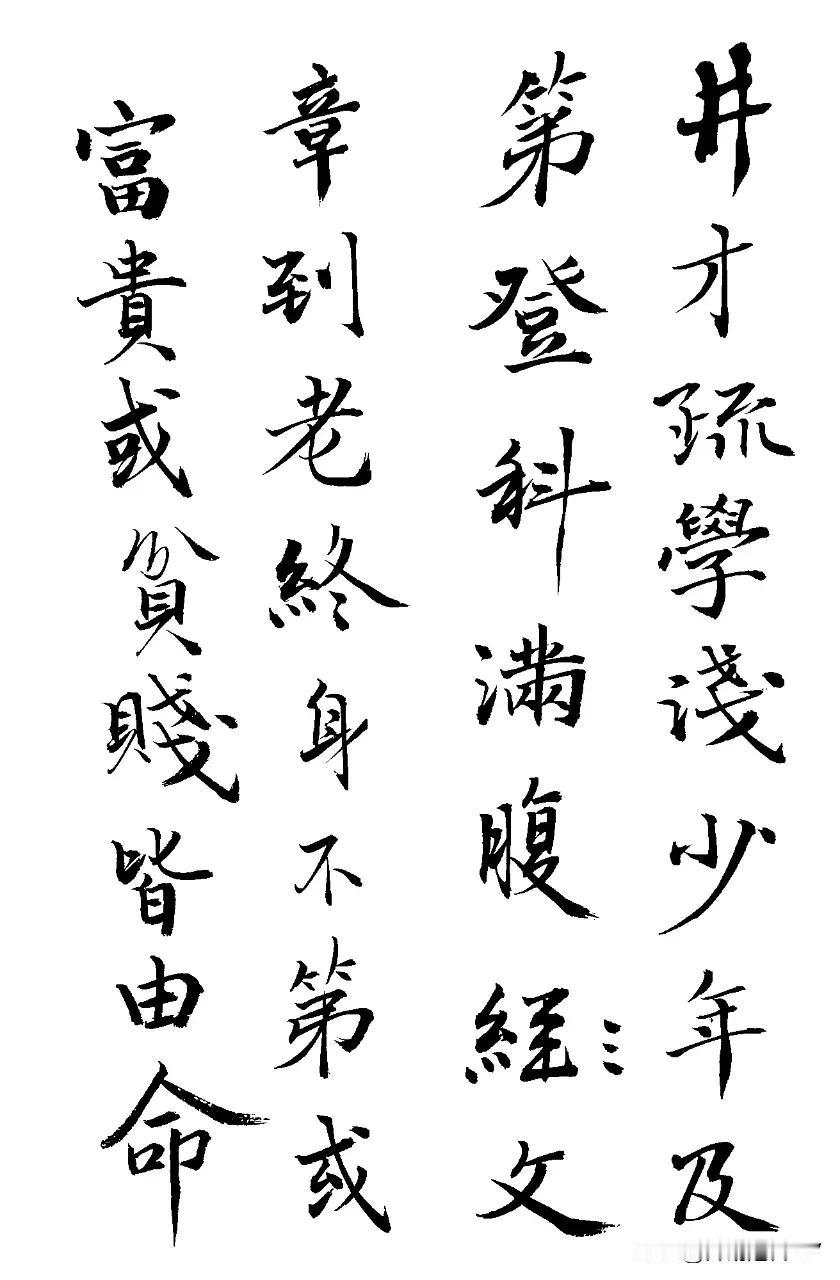 井才疏學淺少年及
第登科滿腹經文
章到老終身不第或
富貴或貧賤皆由命